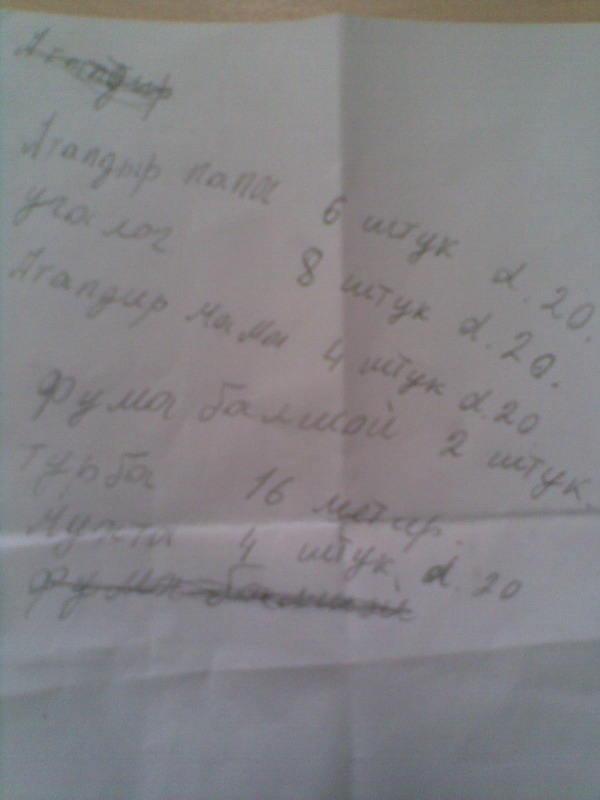 Атапдир
Атапдыр папа 6 штук d. 20.
угалог 8 штук d. 20.
Атапдир мама 4 штук d. 20
Фума балшой 2 штук.
турба 16 метир.
Муфта 4 штук d. 20
Фума балшой